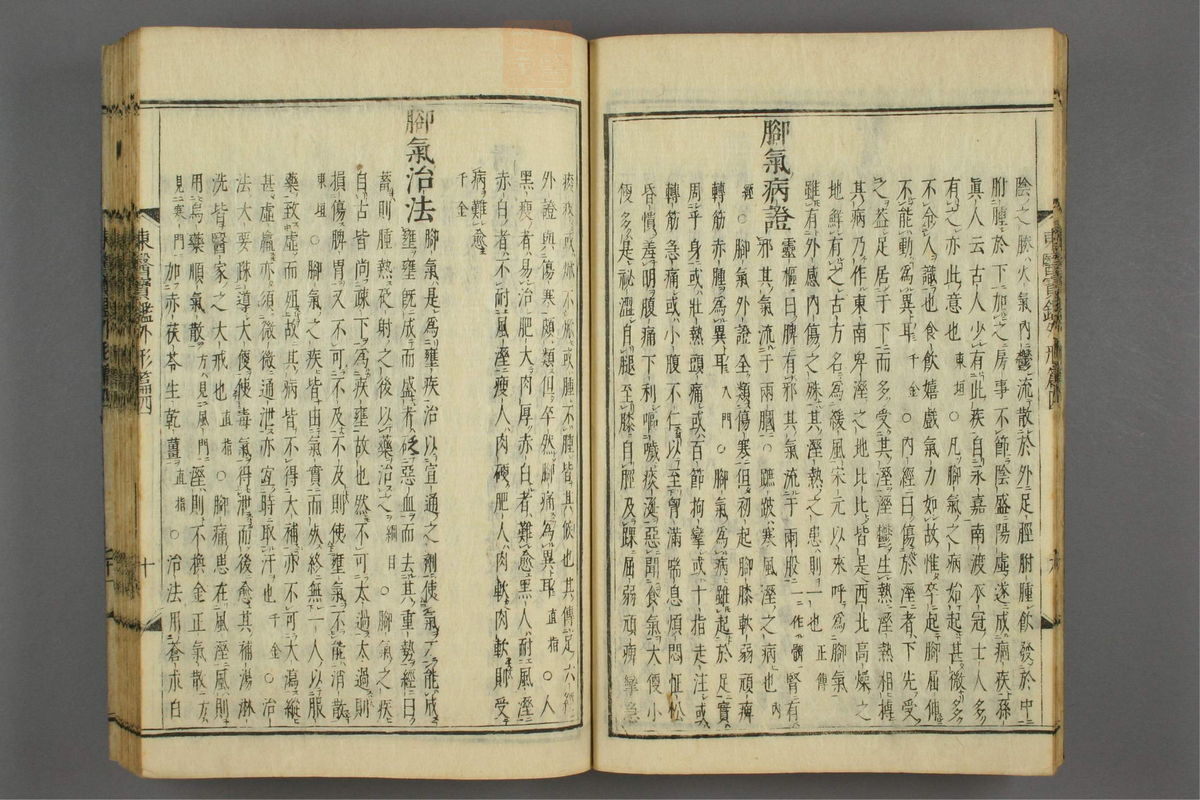 陰之勝火氣內鬱流散於外足脛胕腫飮發於中
胕腫於下加之房事不節陰盛陽虛遂成痼疾孫
眞人云古人少有此疾自永嘉南渡衣冠士人多
有之亦此意也東垣○凡脚氣之病始起甚微多
不令人識也食飮嬉戲氣力如故惟卒起脚屈伸
不能動爲異耳千金○內經曰傷於溼者下先受
之盖足居于下而多受其溼溼鬱生熱溼熱相搏
其病乃作東南卑溼之地比比皆是西北高燥之
地鮮有之古方名爲緩風宋元以來呼爲脚氣
雖有外感內傷之殊其溼熱之患則一也正傳
脚氣病證
靈樞曰脾有邪其氣流于兩股一作髀腎有
邪其氣流于兩膕○蹠跛寒風溼之病也內
經○脚氣外證全類傷寒但初起脚膝軟弱頑痺
轉筋赤腫爲異耳入門○脚氣爲病雖起於足實
周乎身或壯熱頭痛或百節拘攣或十指走注或
轉筋急痛或小腹不仁以至胷滿喘息煩悶怔忪
昏憒羞明腹痛下利嘔噦痰涎惡聞食氣大便小
便多是祕澀自腿至膝自脛及踝屈弱頑痺攣急
痠疼或焮不焮或腫不腫皆其候也其傳足六經
外證與傷寒頗類但卒然脚痛爲異耳直指○人
黑瘦者易治肥大肉厚赤白者難愈黑人耐風溼
赤白者不耐風溼瘦人肉硬肥人肉軟肉軟則受
病難愈
千金
脚氣治法
脚氣是爲壅疾治以宣通之劑使氣不能成
壅壅旣成而盛者砭惡血而去其重勢經曰
蓄則腫熱砭射之後以藥治之綱目○脚氣之疾
自古皆尚疎下爲疾壅故也然不可太過太過則
損傷脾胃又不可不及不及則使壅氣不能消散
東垣○脚氣之疾皆由氣實而終無一人以服
藥致虛而殂故其病皆不得大補亦不可大瀉縱
甚虛羸亦須微微通泄亦宜時取汗也千金○治
法大要踈導大便使毒氣得泄而後愈其補湯淋
洗皆醫家之大戒也直指○脚痛患在風溼風則
用烏藥順氣散方見風門溼則不換金正氣散方
見寒門加赤茯苓生乾薑直指○治法用蒼朮白
東醫寶鑑外形篇四
十